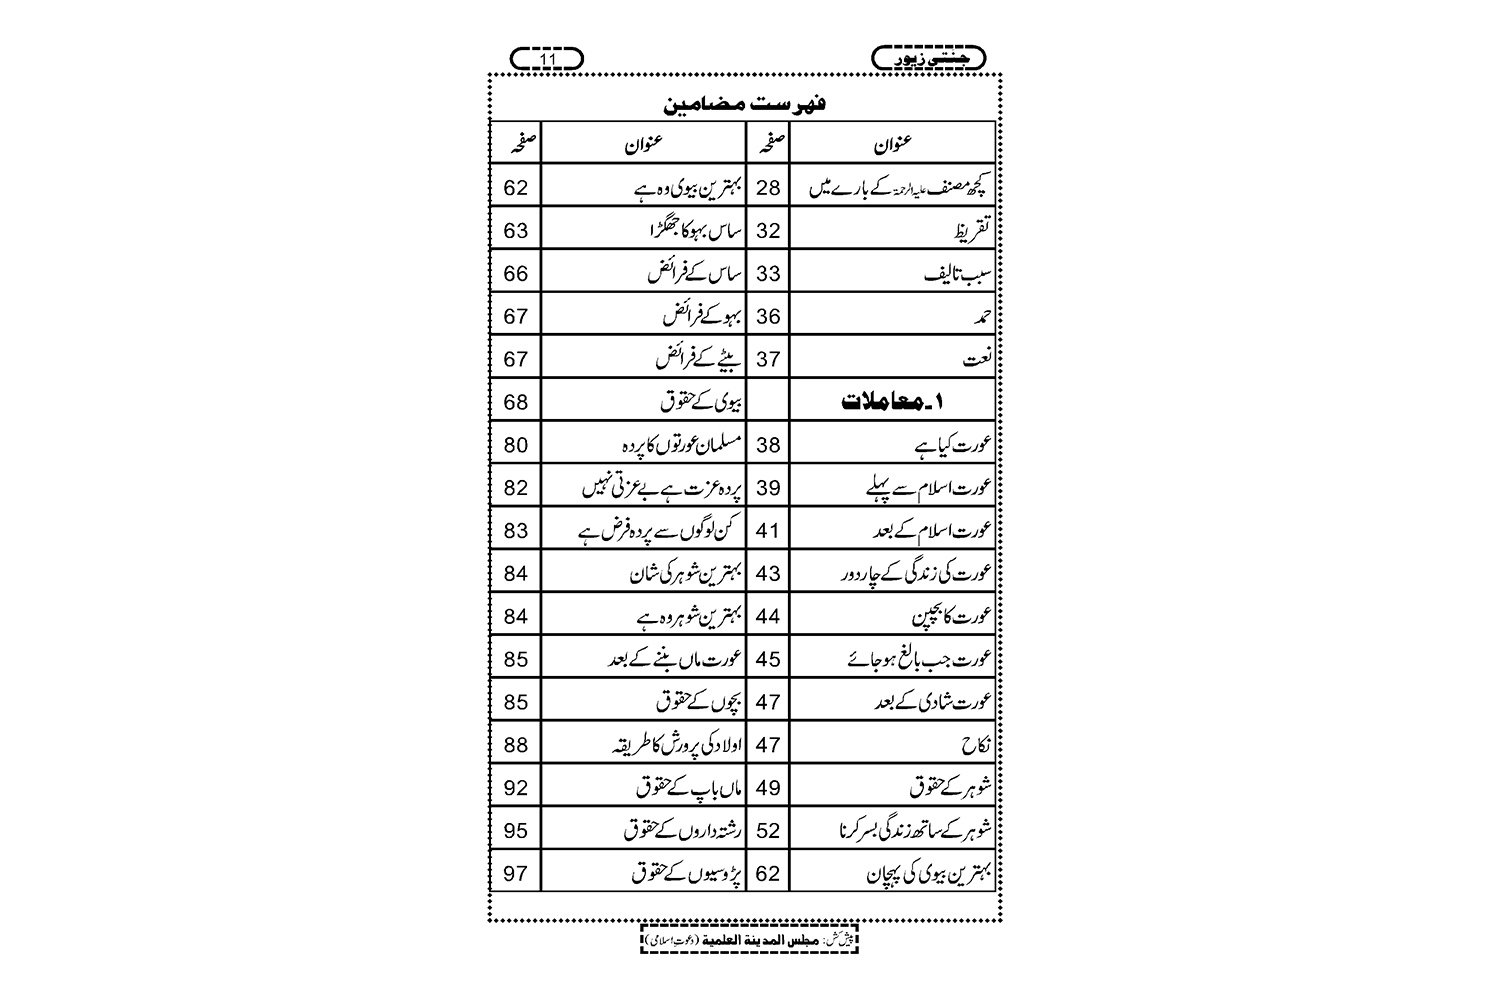 جنتی زیور 11
فہرست مضامین
عنوان صفحہ عنوان صفحہ
کچھ مصنف علیہ الرحمۃ کے بارے میں 28 بہترین بیوی وہ ہے 62
تقریظ 32 ساس بہو کا جھگڑا 63
سبب تالیف 33 ساس کے فرائض 66
حمد 36 بہو کے فرائض 67
نعت 37 بیٹے کے فرائض 67
۱۔معاملات بیوی کے حقوق 68
عورت کیا ہے 38 مسلمان عورتوں کا پردہ 80
عورت اسلام سے پہلے 39 پردہ عزت ہے بے عزتی نہیں 82
عورت اسلام کے بعد 41 کن لوگوں سے پردہ فرض ہے 83
عورت کی زندگی کے چار دور 43 بہترین شوہر کی شان 84
عورت کا بچپن 44 بہترین شوہر وہ ہے 84
عورت جب بالغ ہو جائے 45 عورت ماں بننے کے بعد 85
عورت شادی کے بعد 47 بچوں کے حقوق 85
نکاح 47 اولاد کی پرورش کا طریقہ 88
شوہر کے حقوق 49 ماں باپ کے حقوق 92
شوہر کے ساتھ زندگی بسر کرنا 52 رشتہ داروں کے حقوق 95
بہترین بیوی کی پہچان 62 پڑوسیوں کے حقوق 97
پیش کش: مجلس المدینة العلمیة (دعوتِ اسلامی)